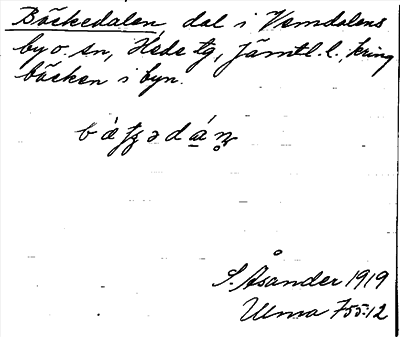 Bäckedalen, dal i Vemdalens
by o. sn, Hede tg, Jämtl. l. kring
bäcken i byn.
S. Åsander 1919
Ulma 755:12